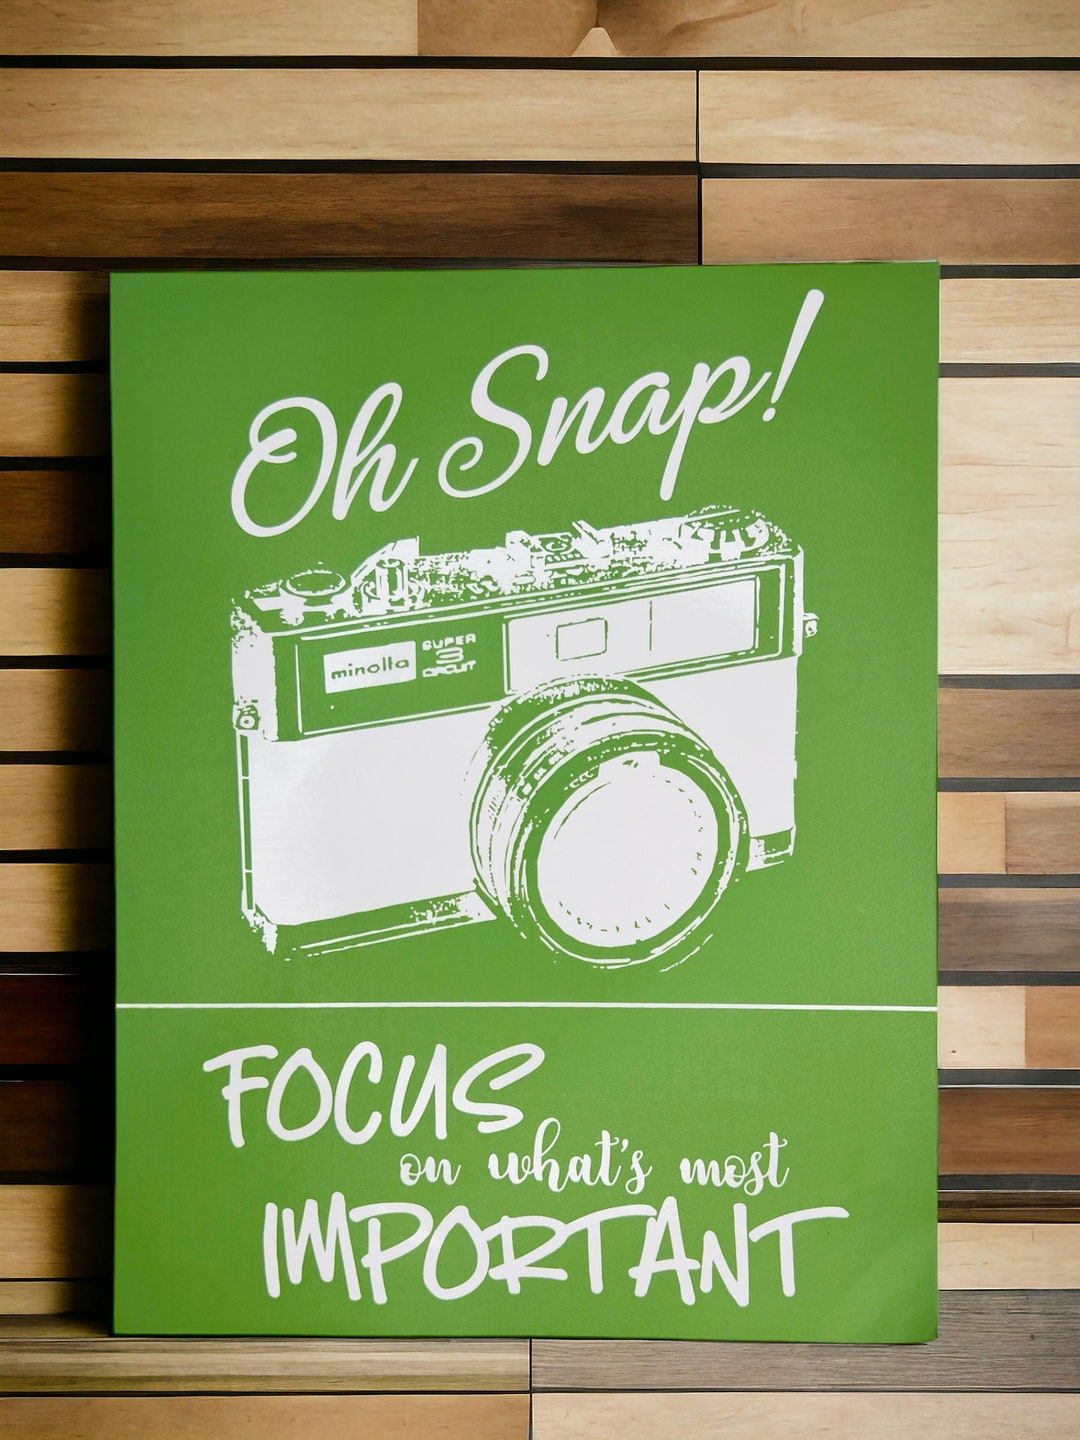 Oh Snap!
minolta
SUPER
3
CIRCUIT
FOCUS
on what's most
IMPORTANT